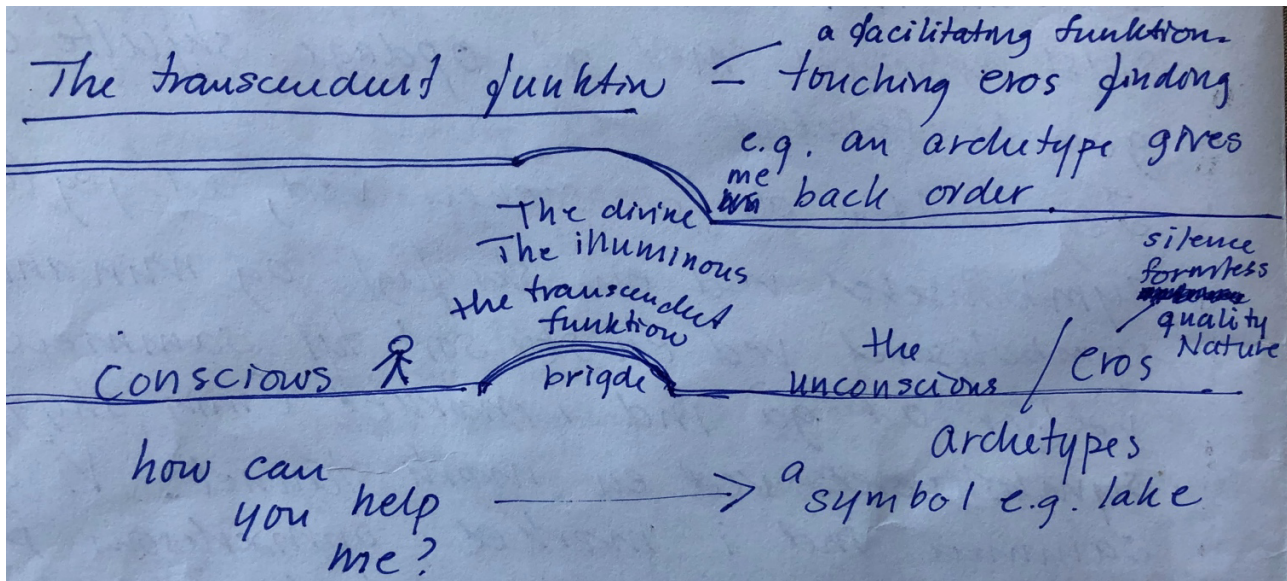 a facilitating funktion.
The transcendent funktin = touching eros finding
e.g. an archetype gives
me back order.
The divine
The illuminous
the transcendent
funktion
silence
formless
quality
Nature
Conscious
brigde
the
unconscious / eros
archetypes
how can
you help
me?
a
symbol e.g. lake